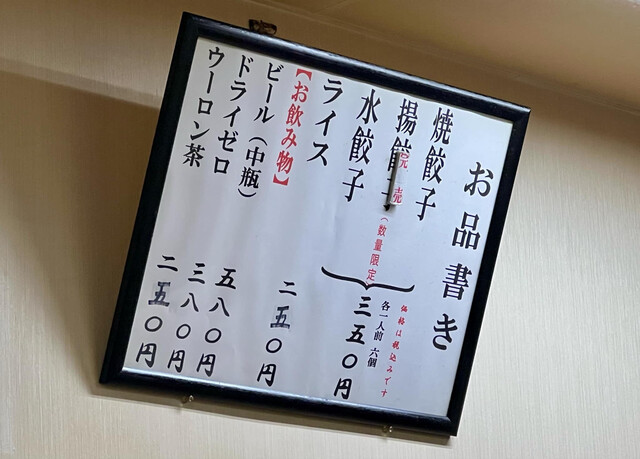 お品書き
価格は税込みです
焼餃子
揚餃子(数量限定)
売
水餃子
各一人前 六個
三五〇円
ライス
二五〇円
【お飲み物】
ビール(中瓶)
五八〇円
ドライゼロ
三八〇円
ウーロン茶
二五〇円